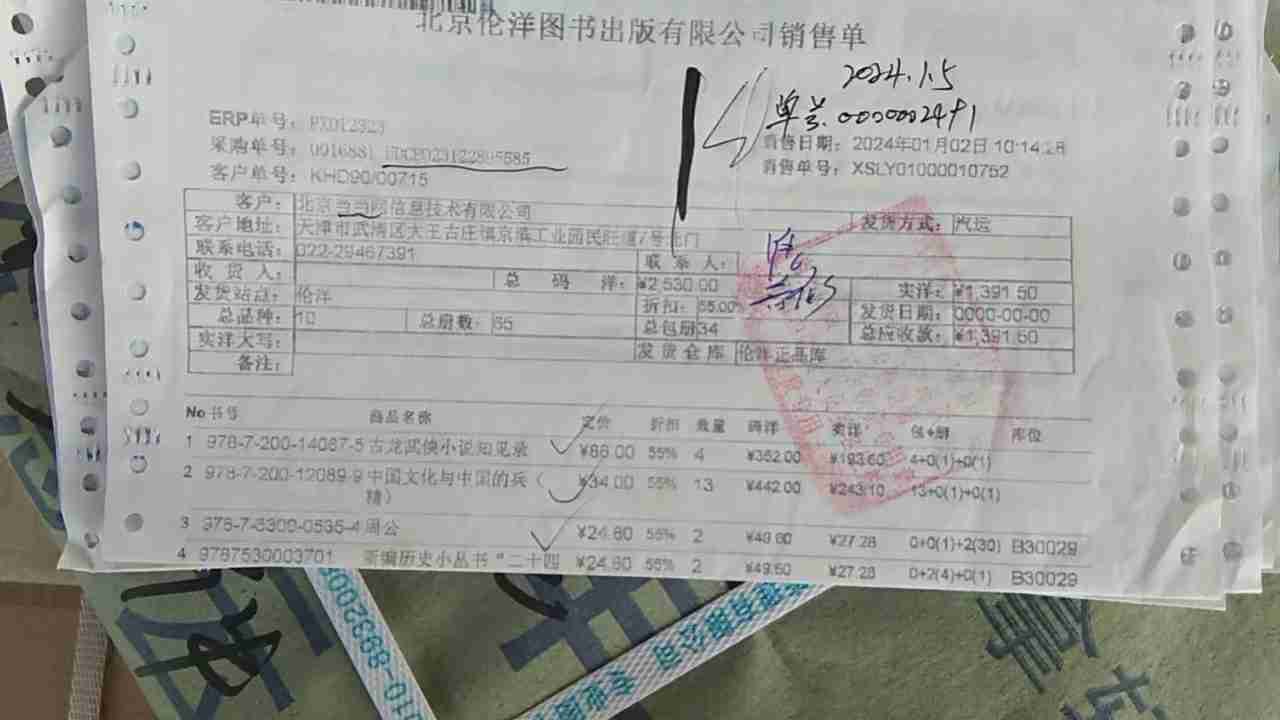 北京伦洋图书出版有限公司销售单
2024.1.5
单号:0000002491
ERP单号: PX012323
采购单号: 0916881
客户单号: KHD90/00715
销售日期: 2024年01月02日 10:14:28
销售单号: XSLY01000010752
客户: 北京当当网信息技术有限公司 发货方式: 汽运
客户地址: 天津市武清区大王古庄镇京滨工业园民旺道7号北门
联系电话: 022-29467391 联系人:
收货人: 总码洋: ¥2,530.00 实洋: ¥1,391.50
发货站点: 伦洋 折扣: 55.00 发货日期: 0000-00-00
总品种: 10 总册数: 65 总包册34 总应收款: ¥1,391.50
实洋大写: 发货仓库 伦洋正品库
备注:
No 书号 商品名称 定价 折扣 数量 码洋 实洋 包+册 库位
1 978-7-200-14087-5 古龙武侠小说知见录 ¥88.00 55% 4 ¥352.00 ¥193.60 4+0(1)+0(1)
2 978-7-200-12089-9 中国文化与中国的兵( ¥34.00 55% 13 ¥442.00 ¥243.10 13+0(1)+0(1)
精)
3 978-7-5300-0535-4 周公 ¥24.80 55% 2 ¥49.60 ¥27.28 0+0(1)+2(30) B30029
4 9787530003701 新编历史小丛书“二十四 ¥24.80 55% 2 ¥49.60 ¥27.28 0+2(4)+0(1) B30029